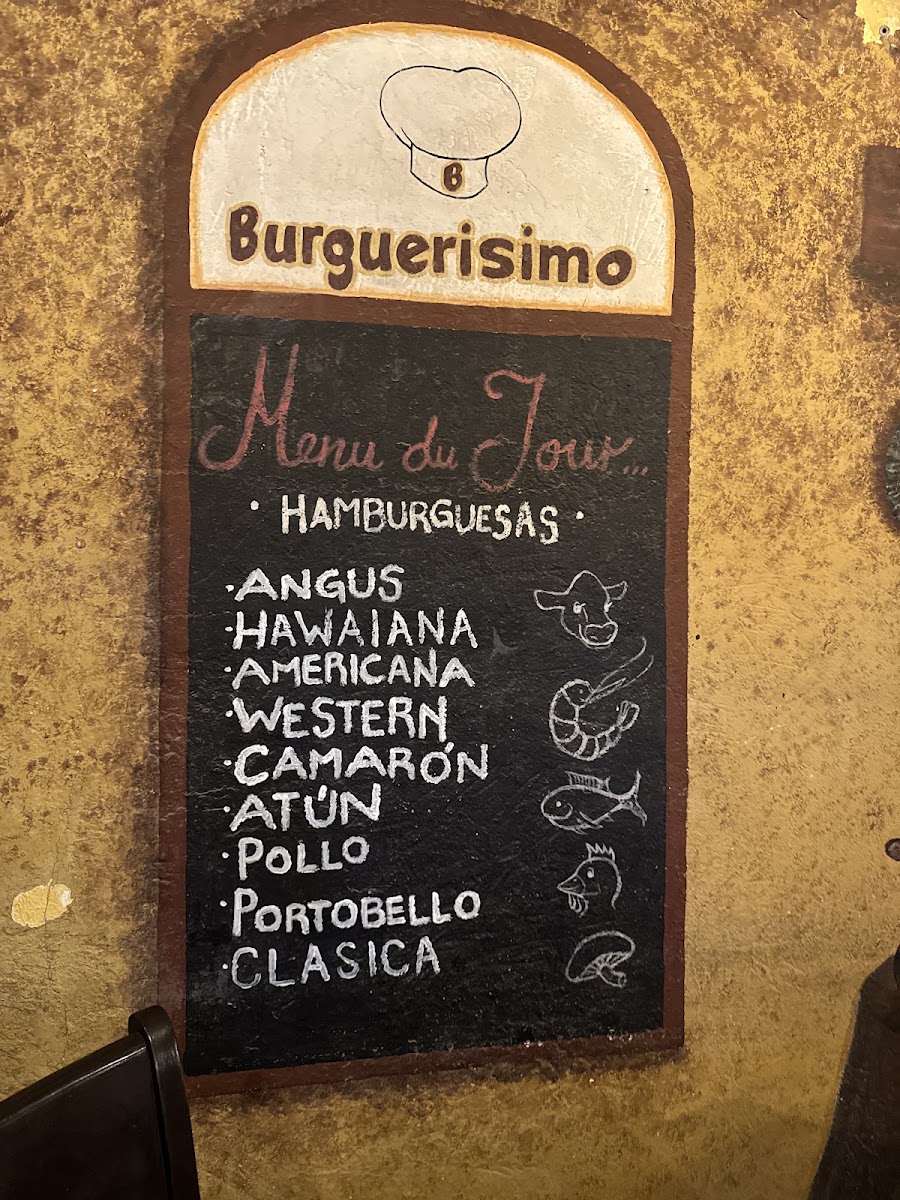 B
Burguerisimo
Menu du Jour...
· HAMBURGUESAS ·
·ANGUS
·HAWAIANA
·AMERICANA
·WESTERN
·CAMARÓN
·ATÚN
·POLLO
·PORTOBELLO
·CLASICA